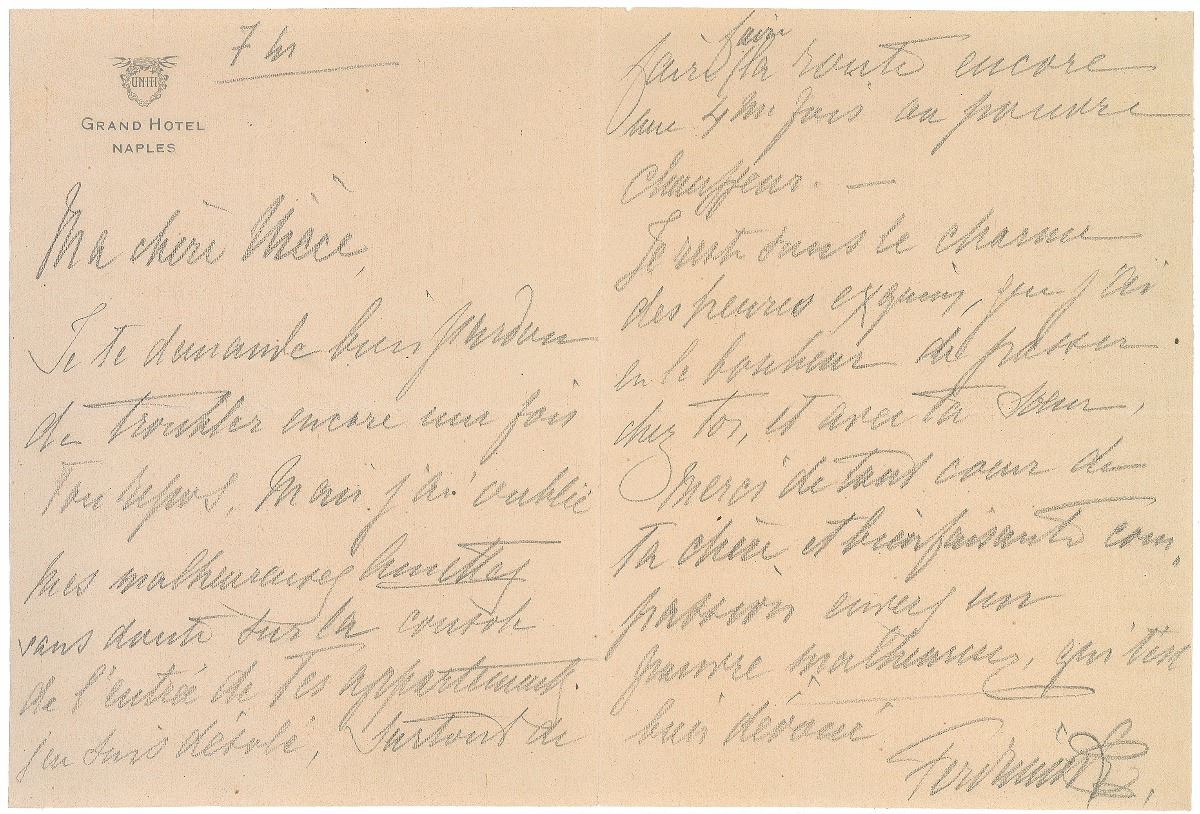 7 hs
UNITI
GRAND HOTEL
NAPLES
Ma chère Nièce,
Je te demande bien pardon
de troubler encore une fois
Ton repos. Mais j'ai oublié
mes malheureuses lunettes
sans doute sur la console
de l'entrée de Tes appartements.
j'en suis désolé, surtout de
faire faire la route encore
une 4me fois au pauvre
chauffeur. —
Je reste sous le charme
des heures exquises, que j'ai
eu le bonheur de passer
chez toi, et avec ta soeur,
Merci de tout coeur de
ta chère et bienfaisante com-
passion envers un
pauvre malheureux, qui t'est
bien dévoué
Ferdinand